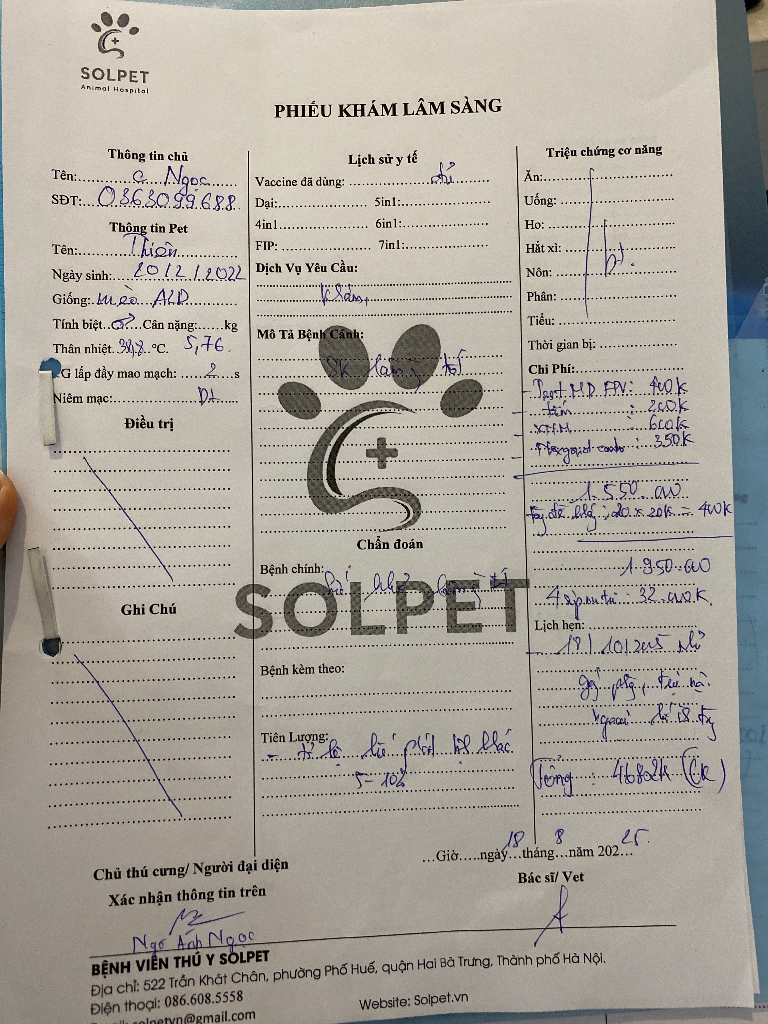 SOLPET
Animal Hospital
PHIẾU KHÁM LÂM SÀNG
Thông tin chủ
Tên: c Ngọc
SĐT: 0363099688
Thông tin Pet
Tên: Thiên
Ngày sinh: 20/2/2022
Giống: mèo ALD
Tính biệt ♂ Cân nặng:......kg
Thân nhiệt 38,8 °C. 5,76
TG lấp đầy mao mạch: 2 s
Niêm mạc:
Điều trị
Ghi Chú
Lịch sử y tế
Vaccine đã dùng: đủ
Dại:........ 5in1:........
4in1........ 6in1:........
FIP:........ 7in1:........
Dịch Vụ Yêu Cầu:
Khám,
Mô Tả Bệnh Cảnh:
SK
Chẩn đoán
Bệnh chính:
SOLPET
Bệnh kèm theo:
Tiên Lượng:
- tỉ lệ
5-10%
Triệu chứng cơ năng
Ăn:
Uống:
Ho:
Hắt xì:
bt.
Nôn:
Phân:
Tiểu:
Thời gian bị:
Chi Phí:
FPV: 400k
- : 200k
- XNM : 600k
- : 350k
1.550.000
: 20 x 20k = 400k
1.950.000
Lịch hẹn:
Tổng : 4682k (CK)
...Giờ.....ngày 18 tháng 8 năm 2025
Chủ thú cưng/ Người đại diện
Xác nhận thông tin trên
Ngô Ánh Ngọc
Bác sĩ/ Vet
BỆNH VIỆN THÚ Y SOLPET
Địa chỉ: 522 Trần Khát Chân, phường Phố Huế, quận Hai Bà Trưng, Thành phố Hà Nội.
Điện thoại: 086.608.5558
Website: Solpet.vn
solpetvn@gmail.com